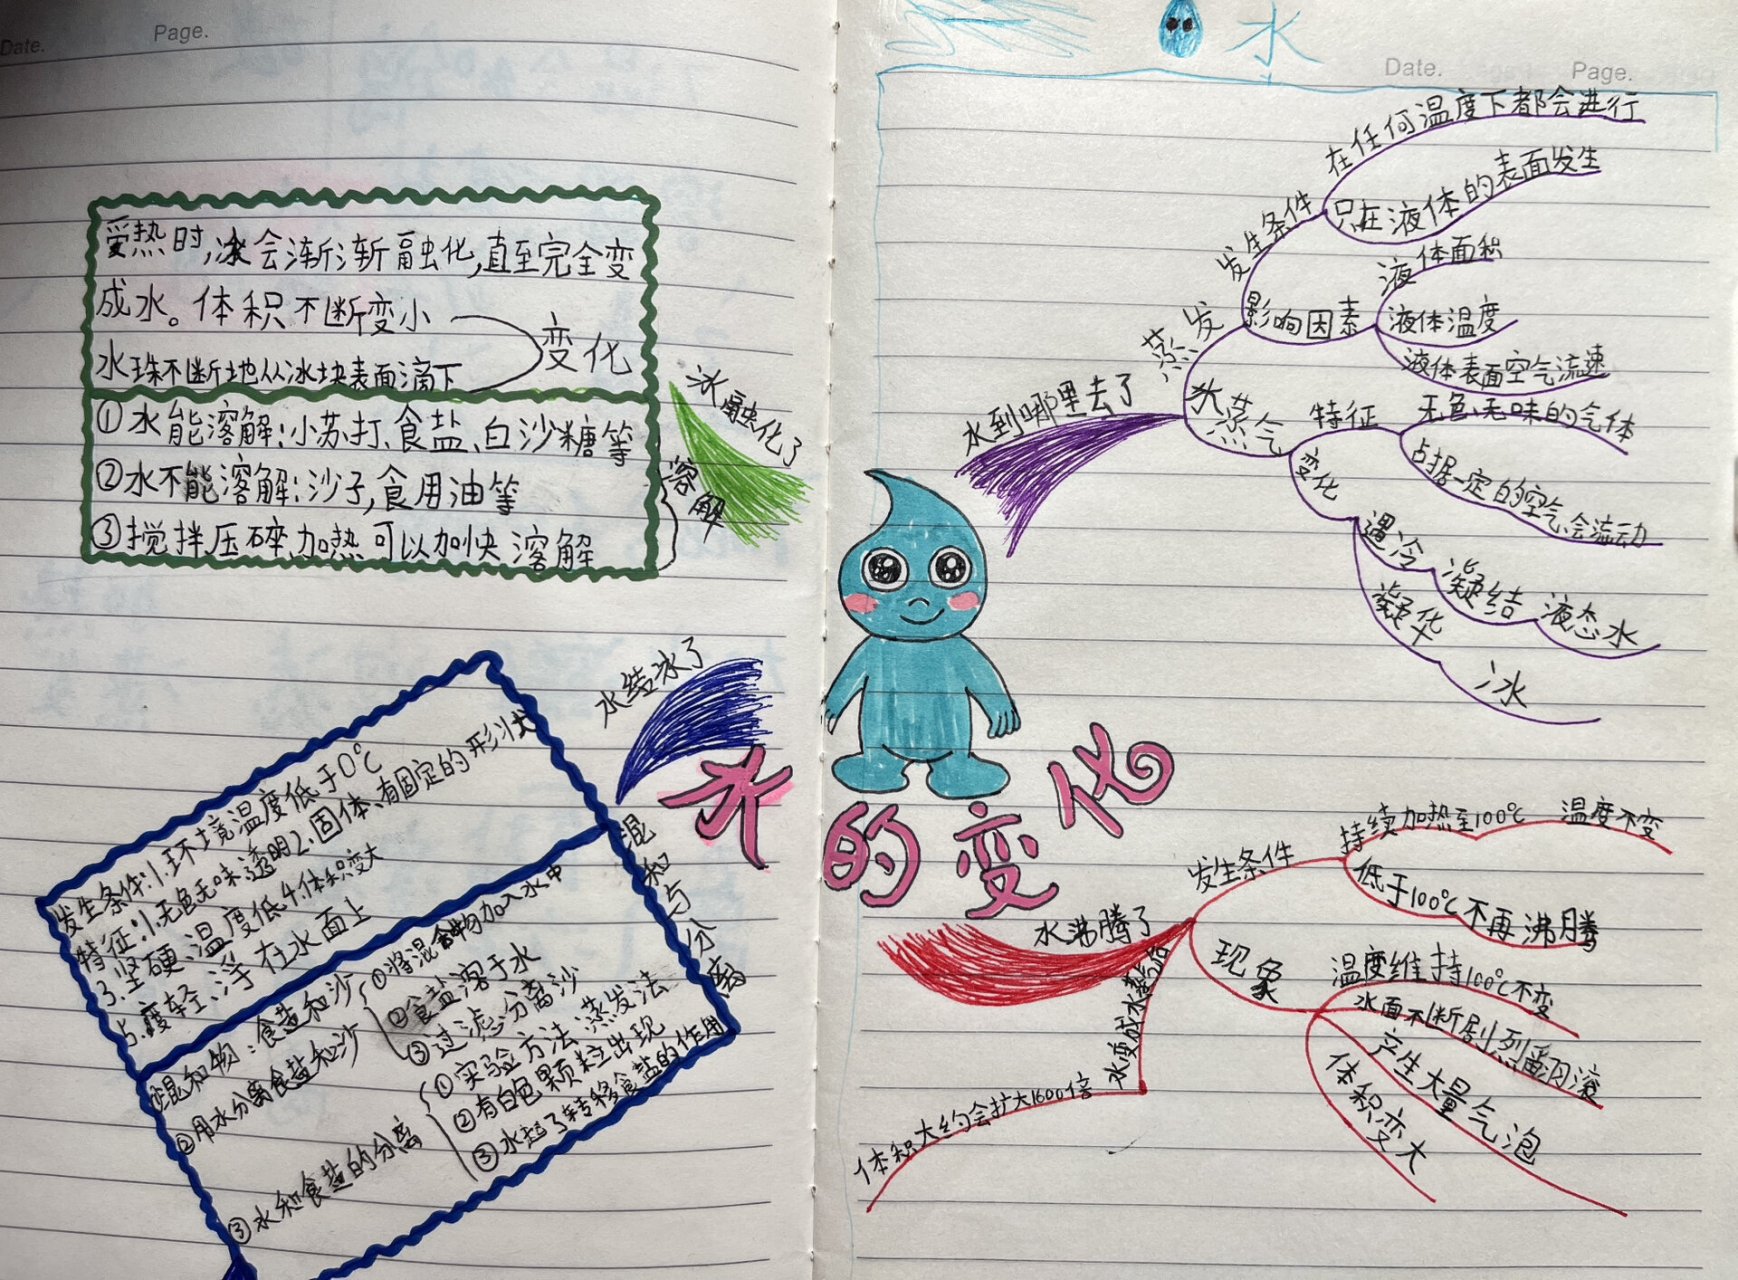 Date.
Page.
受热时,冰会渐渐融化,直至完全变
成水。体积不断变小
水珠不断地从冰块表面滴下
变化
①水能溶解:小苏打、食盐、白沙糖等
②水不能溶解:沙子,食用油等
③搅拌、压碎、加热可以加快溶解
冰融化了
溶解
水结冰了
发生条件:1.环境温度低于0℃
特征:1.无色无味透明2.固体、有固定的形状
3.坚硬、温度低4.体积变大
5.度轻、浮在水面上
混和与分离
混和物:食盐和沙
②用水分离食盐和沙
①将混合物加入水中
②食盐溶于水
③过滤分离沙
③水和食盐的分离
①实验方法:蒸发法
②有白色颗粒出现
③水起了转移食盐的作用
水
Date.
Page.
水的变化
水到哪里去了
蒸发
发生条件
在任何温度下都会进行
只在液体的表面发生
影响因素
液体面积
液体温度
液体表面空气流速
水蒸气
特征
无色、无味的气体
占据一定的空气、会流动
变化
遇冷
凝结
液态水
凝华
冰
水沸腾了
发生条件
持续加热至100℃
温度不变
低于100℃不再沸腾
现象
温度维持100℃不变
水面不断剧烈翻滚
产生大量气泡
体积变大
水变成水蒸气后
体积大约会扩大1600倍